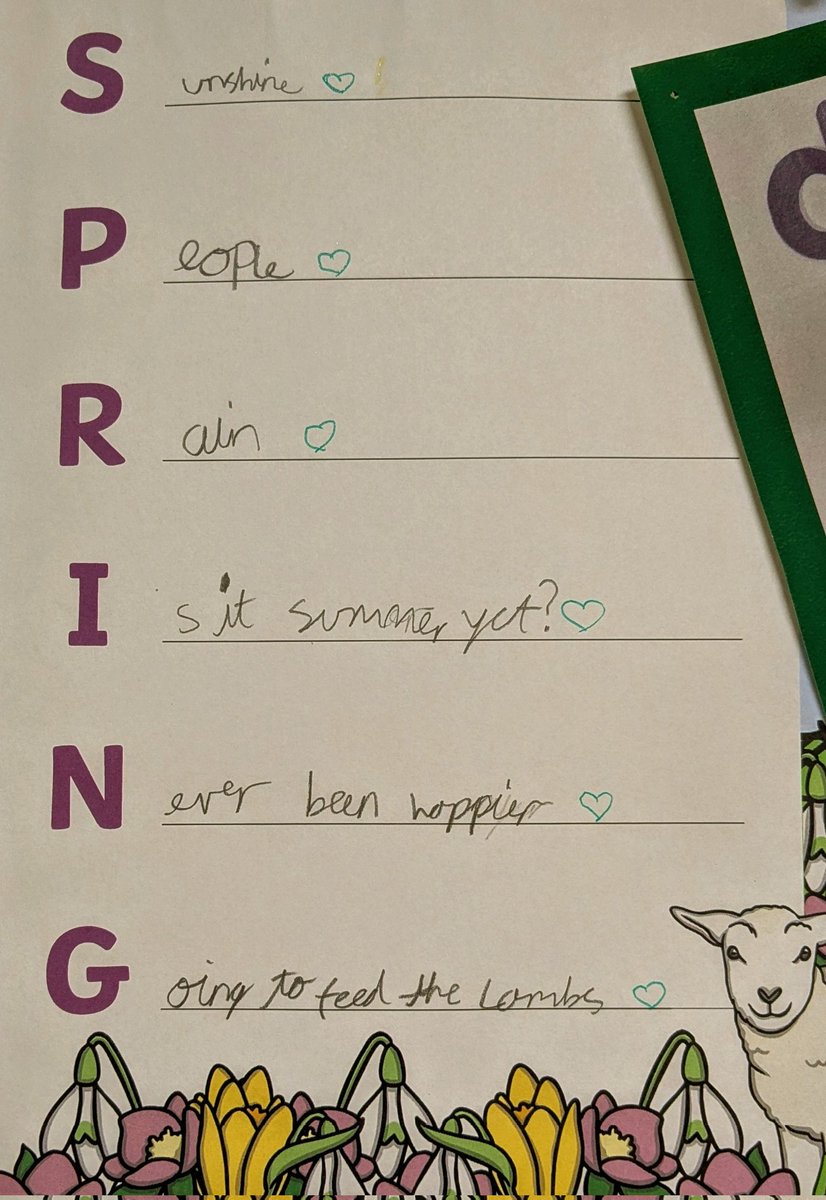 Sunshine ♡ !
People ♡
Rain ♡
Is it summer yet? ♡
Never been happier ♡
Going to feed the Lambs ♡